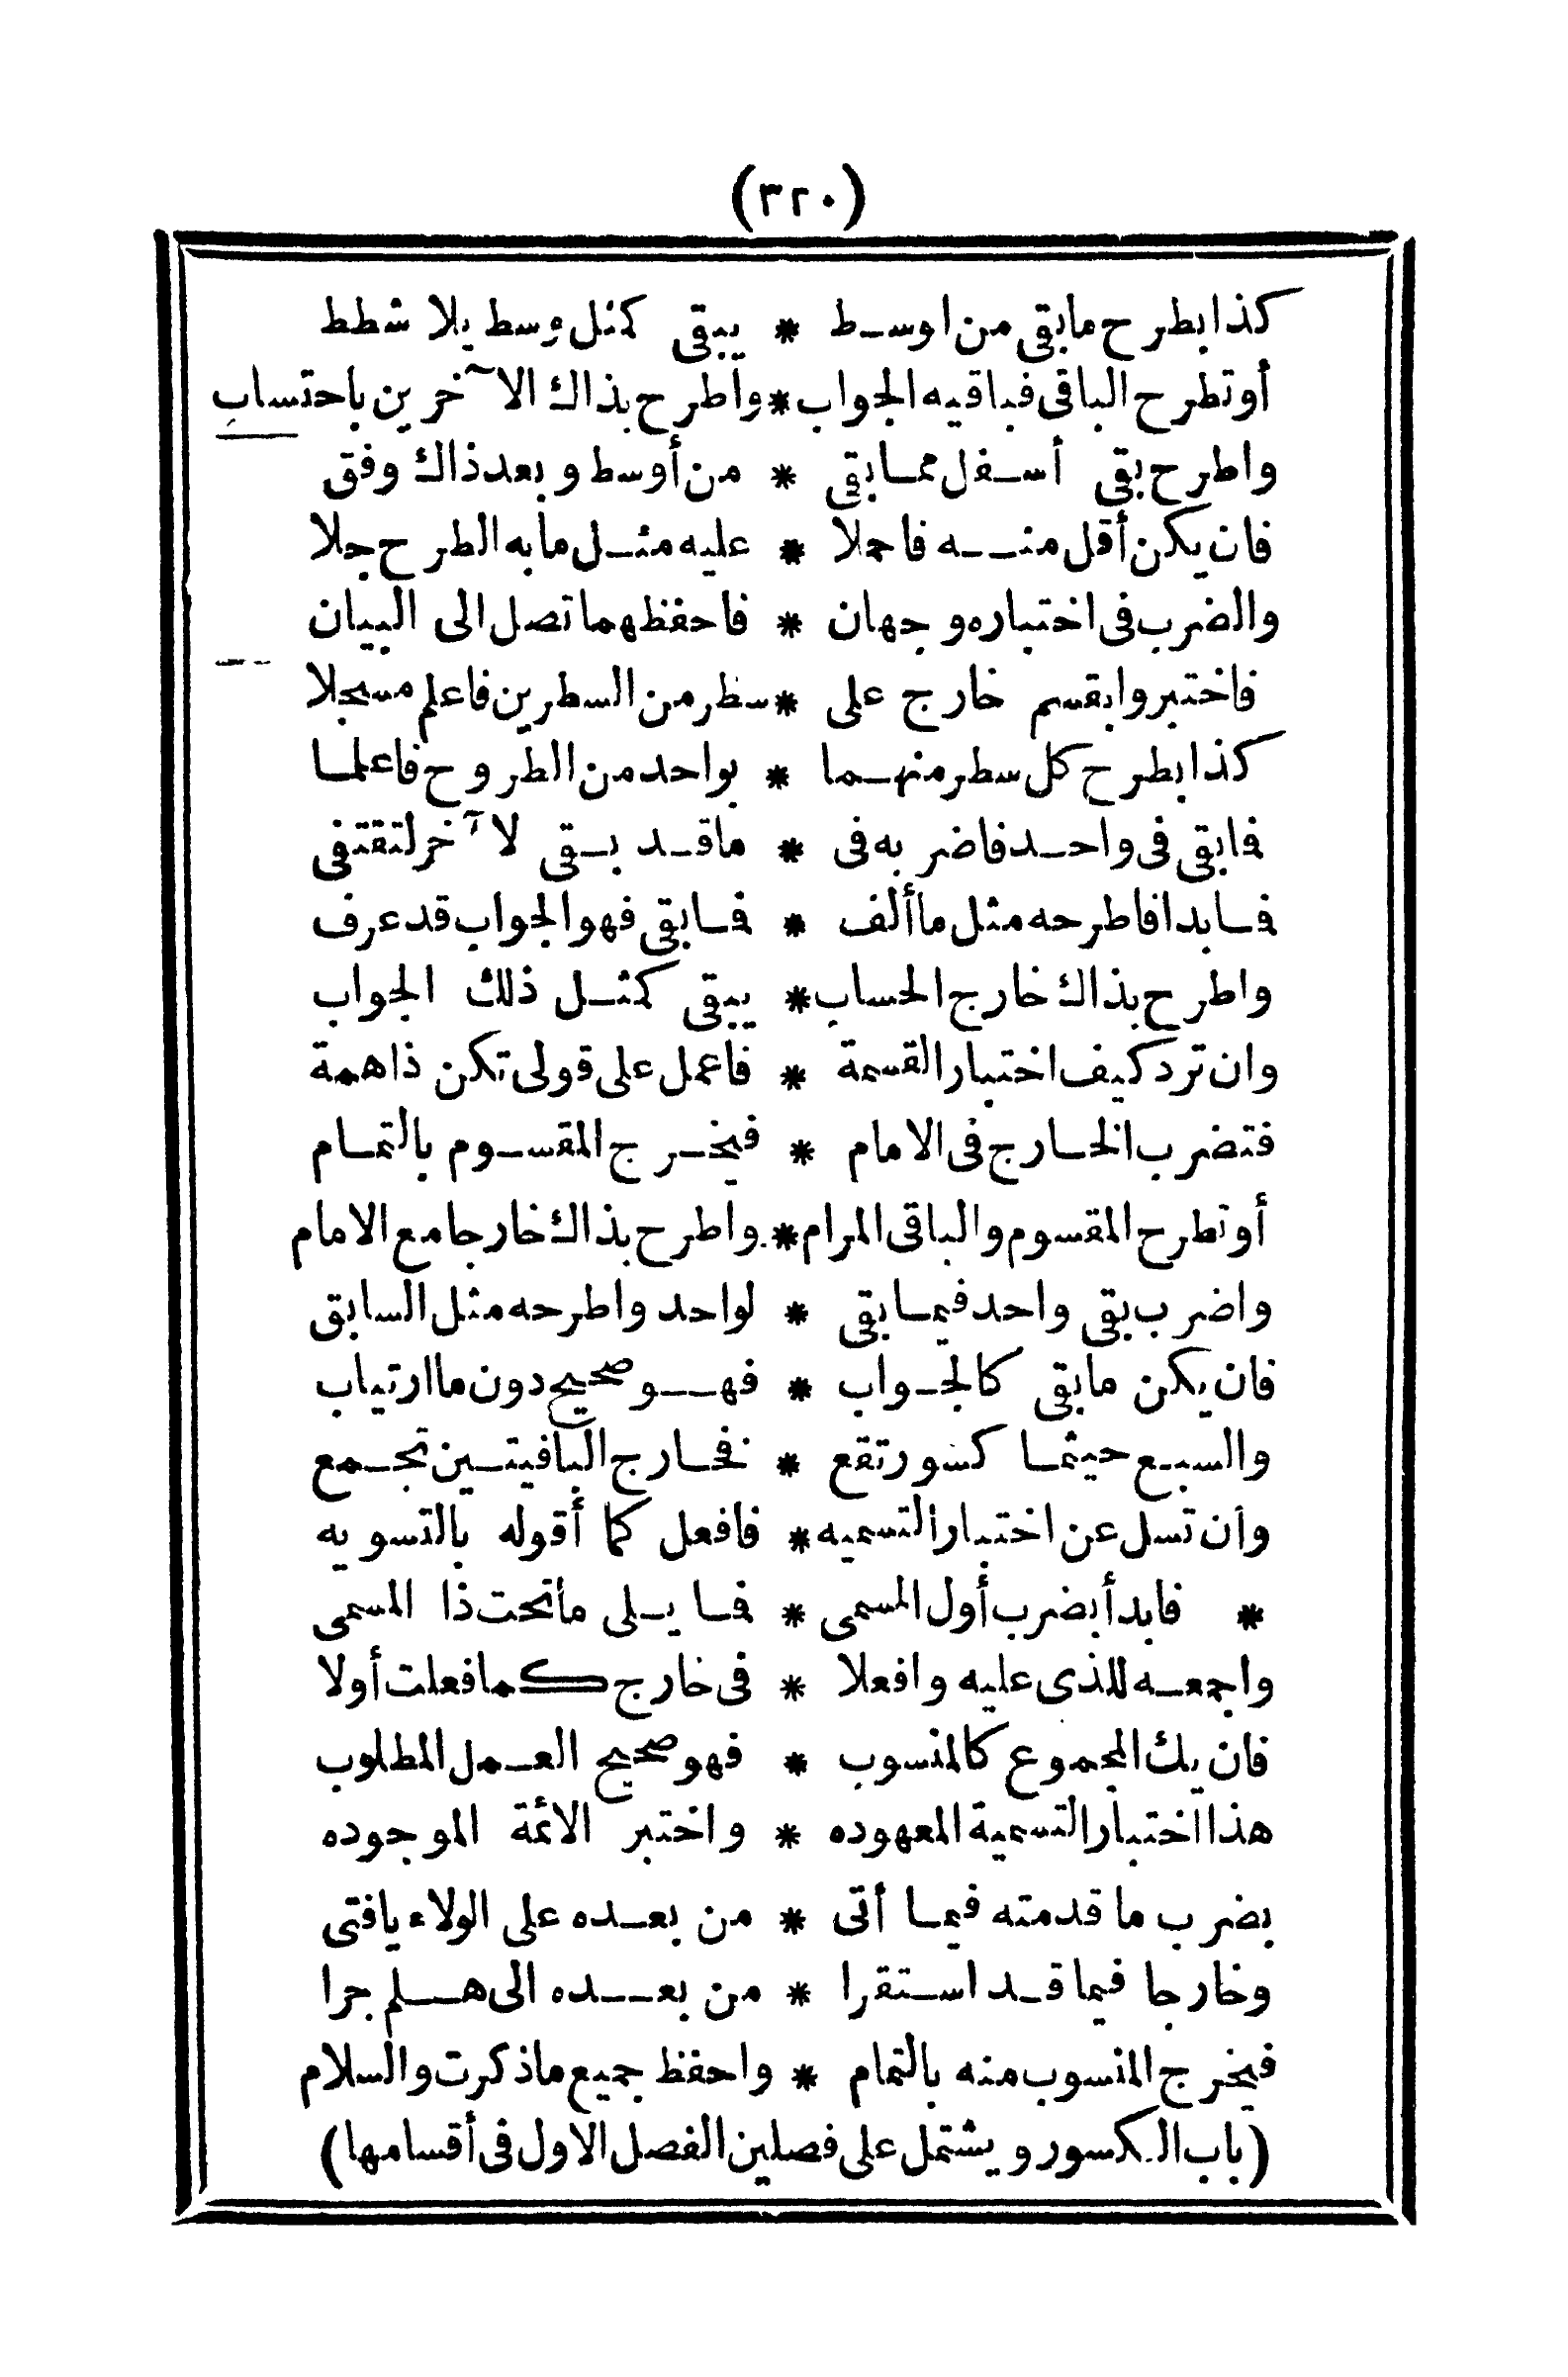 (٣٢٠)
كذا بطرح ما بقى من اوسط * يبقى كمثل وسط بلا شطط
أو تطرح الباقى فباقيه الجواب * واطرح بذاك الآخرين باحتساب
واطرح بقى أسفل مما بقى * من أوسط وبعد ذاك وفق
فان يكن أقل منه فاحملا * عليه مثل ما به الطرح جلا
والضرب فى اختباره وجهان * فاحفظهما تصل الى البيان
فاختبروا بقسم خارج على * سطر من السطرين فاعلم مسجلا
كذا بطرح كل سطر منهما * بواحد من الطروح فاعلما
فابقى فى واحد فاضربه فى * ما قد بقى لآخر لتقتفى
فما بدا فاطرحه مثل ما ألف * فما بقى فهو الجواب قد عرف
واطرح بذاك خارج الحساب * يبقى كمثل ذلك الجواب
وان ترد كيف اختبار القسمة * فاعمل على قولى تكن ذا همة
فتضرب الخارج فى الامام * فيخرج المقسوم بالتمام
أو تطرح المقسوم والباقى المرام * واطرح بذاك خارجا مع الامام
واضرب بقى واحد فيما بقى * لواحد واطرحه مثل السابق
فان يكن ما بقى كالجواب * فهو صحيح دون ما ارتياب
والسبع حيثما كسور تقع * فخارج الباقيتين تجمع
وان تسل عن اختبار التسميه * فافعل كما أقوله بالتسويه
* فابدأ بضرب أول المسمى * فما يلى ما تحت ذا المسمى
واجمعه للذى عليه وافعلا * فى خارج كما فعلت أولا
فان يك المجموع كالمنسوب * فهو صحيح العمل المطلوب
هذا اختبار التسمية المعهوده * واختبر الائمة الموجوده
بضرب ما قدمته فيما أتى * من بعده على الولاء يافتى
وخارجا فيما قد استقرا * من بعده الى هلم جرا
فيخرج المنسوب منه بالتمام * واحفظ جميع ماذكرت والسلام
(باب الكسور ويشتمل على فصلين الفصل الاول فى أقسامها)